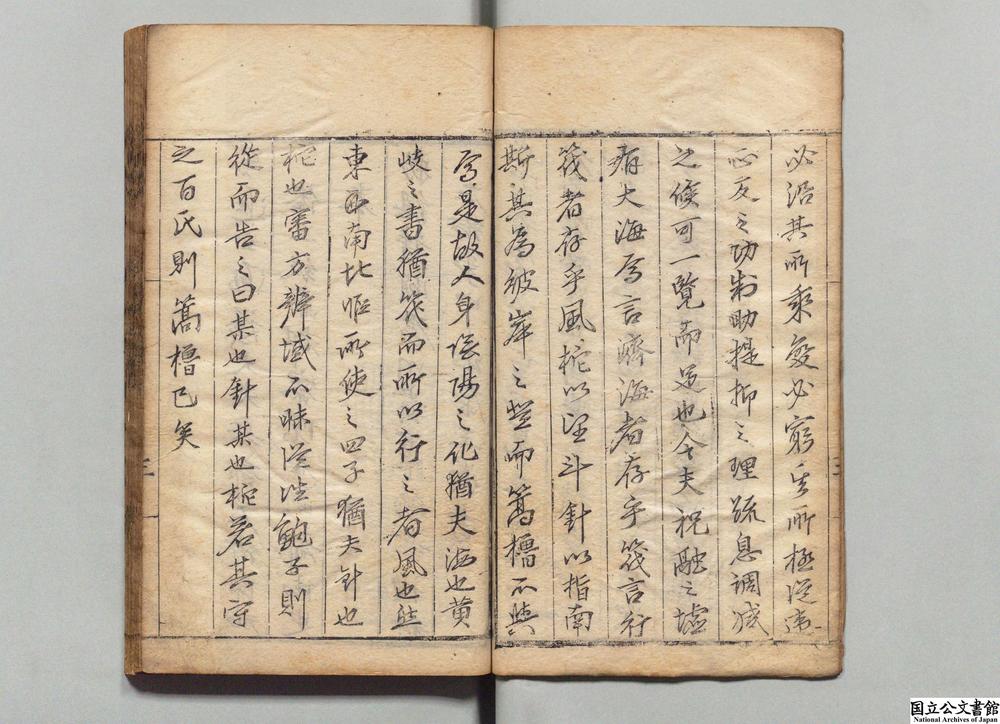 必沿其所乘變必窮其所極從違
正反之功制助提抑之理疏息調成
之候可一覽而足也今夫祝融之墟
有大海焉言濟海者存乎筏言行
筏者存乎風柁以望斗針以指南
斯其為彼岸之登而篙櫓不與
焉是故人身陰陽之化猶夫海也黃
岐之書猶筏而所以行之者風也
東西南北唯所使之四子猶夫針也
柁也審方辨域不昧從違鮑子則
從而告之曰某也針某也柁若其守
之百氏則篙櫓已矣
三
三
国立公文書館
National Archives of Japan